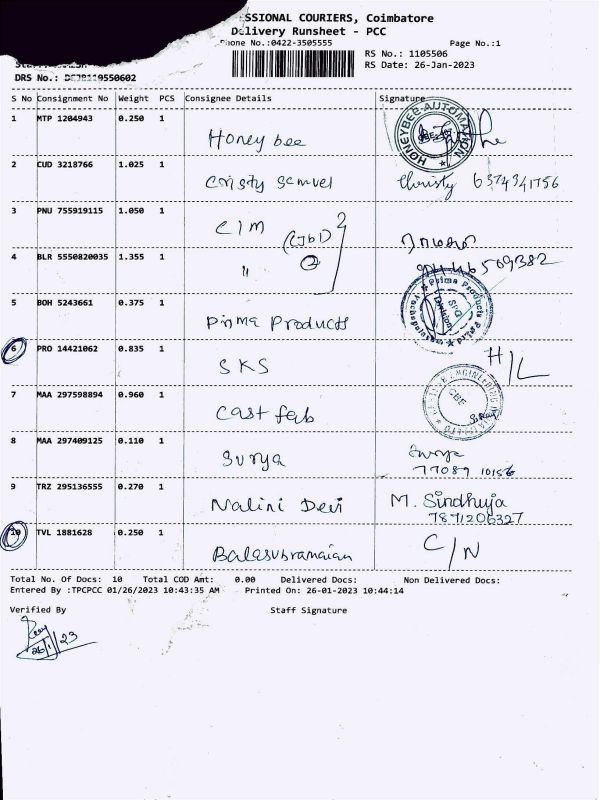 SSIONAL COURIERS, Coimbatore
Delivery Runsheet - PCC
Phone No.:0422-3505555 Page No.:1
RS No.: 1105506
RS Date: 26-Jan-2023
DRS No.:
S No Consignment No Weight PCS Consignee Details Signature
1 MTP 1204943 0.250 1 Honey bee
HONEYBEE AUTOMATION
2 CUD 3218766 1.025 1 Cristy Samuel Christy 6374341756
3 PNU 755919115 1.050 1 CIM
4 BLR 5550820035 1.355 1 "
5 BOH 5243661 0.375 1 Prima Products
Prima Products
SPQ
Division
6 PRO 14421062 0.835 1 SKS H/L
7 MAA 297598894 0.960 1 Cast fab
CBE
8 MAA 297409125 0.110 1 Surya Surya
77089 10156
9 TRZ 295136555 0.270 1 Nalini Devi M. Sindhuja
7871206327
10 TVL 1881628 0.250 1 Balasubramaian C/N
Total No. Of Docs: 10 Total COD Amt: 0.00 Delivered Docs: Non Delivered Docs:
Entered By :TPCPCC 01/26/2023 10:43:35 AM Printed On: 26-01-2023 10:44:14
Verified By Staff Signature
26/1/23